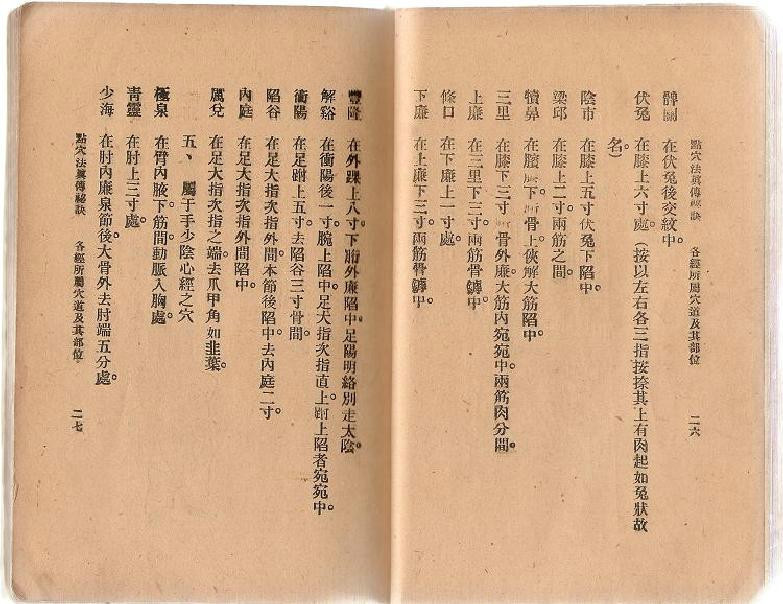 點穴法眞傳秘訣 各經所屬穴道及其部位 二六
髀關 在伏兔後交紋中。
伏兔 在膝上六寸處。(按以左右各三指按捺其上有肉起如兔狀故
名)
陰市 在膝上五寸伏兔下陷中。
梁邱 在膝上二寸兩筋之間。
犢鼻 在膝臏下䯒骨上俠解大筋陷中。
三里 在膝下三寸䯒骨外廉大筋內宛宛中。兩筋肉分間。
上廉 在三里下三寸。兩筋骨罅中。
條口 在下廉上一寸處。
下廉 在上廉下三寸。兩筋骨罅中。
豐隆 在外踝上八寸。下䯒外廉陷中。足陽明絡別走太陰。
解谿 在衝陽後一寸。腕上陷中。足大指次指直上。跗上陷者宛宛中。
衝陽 在足跗上五寸。去陷谷三寸骨間。
陷谷 在足大指次指外間。本節後陷中。去內庭二寸。
內庭 在足大指次指外間陷中。
厲兌 在足大指次指之端。去爪甲角如韭葉。
五、 屬于手少陰心經之穴
極泉 在臂內腋下筋間。動脈入胸處。
靑靈 在肘上三寸處。
少海 在肘內廉泉節後。大骨外去肘端五分處。
點穴法眞傳秘訣 各經所屬穴道及其部位 二七